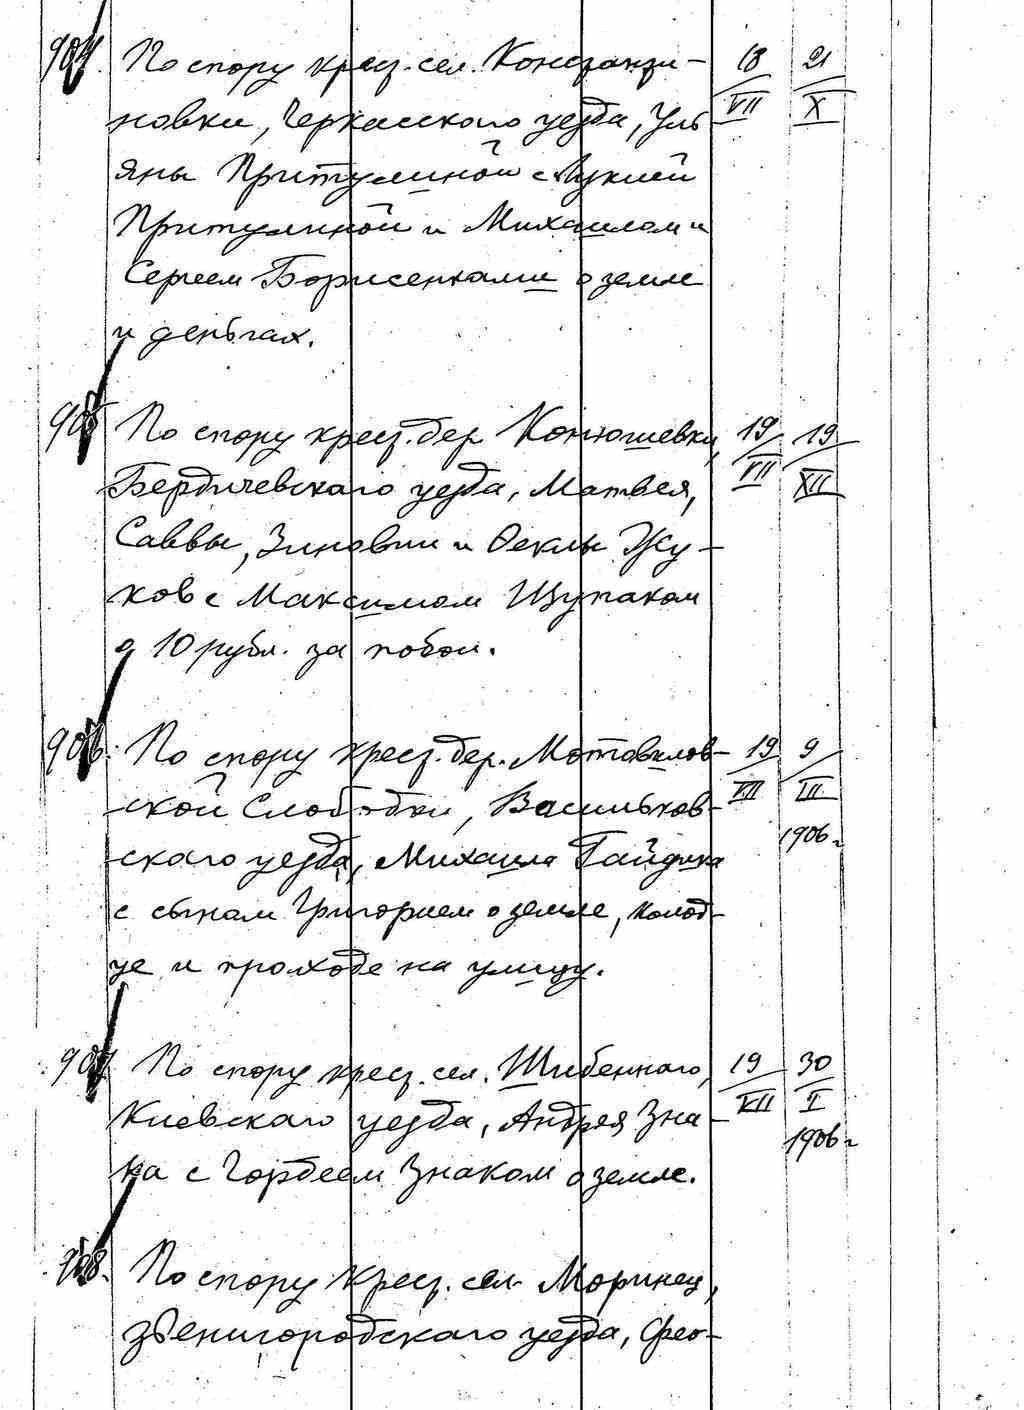 904. По спору крест. сел. Константи- 18 21
новки, Черкасского уезда, Уль VII X
яны Притулиной с Лукией
Притулиной и Михаилом и
Сергеем Борисенками о земле
и деньгах.
905 По спору крест. дер. Конюшевки, 19 19
Бердичевского уезда, Матвея, VII XII
Саввы, Зиновии и Феклы Жу-
ков с Максимом Щупаком
о 10 рубл. за побои.
906. По спору крест. дер. Мотовилов- 19 9
ской Слободки, Васильков- VII III
ского уезда, Михаила Гайдика 1906 г
с сыном Григорием о земле, колод-
це и проходе на улицу.
907 По спору крест. сел. Шибенного, 19 30
Киевского уезда, Андрея Зна- VII I
ка с Гордеем Знаком о земле. 1906 г
908. По спору крест. сел. Моринец,
звенигородского уезда, Фео-